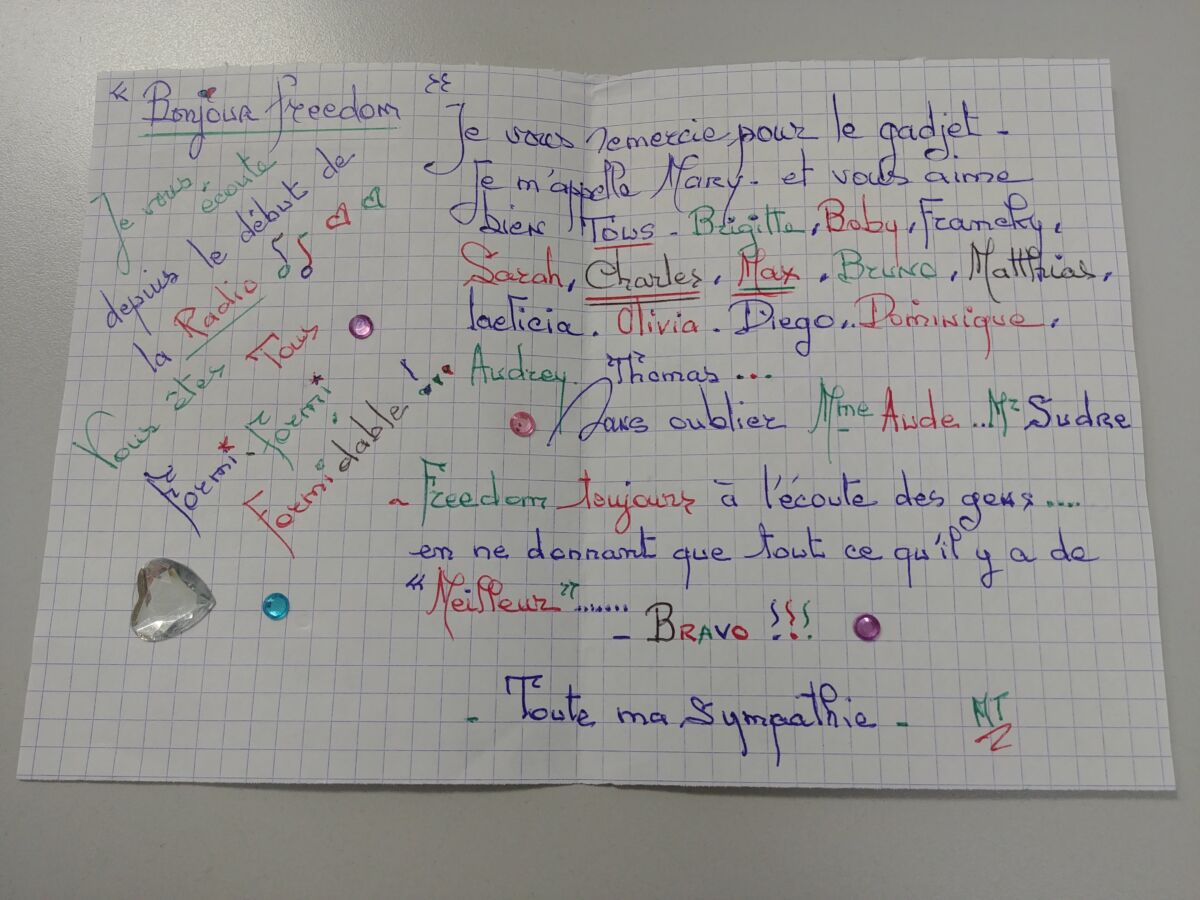 " Bonjour freedom "
Je vous écoute
depuis le début de
la Radio
Vous êtes Tous
"Formi* - formi*
Formidable ! ...
Je vous remercie pour le gadjet -
Je m'appelle Mary - et vous aime
bien Tous - Brigitte, Boby, Francky,
Sarah, Charles, Max, Bruno, Matthias,
laeticia. Olivia - Diego.. Dominique,
Audrey. Thomas ...
Sans oublier Mme Aude .. Mr Sudre
~ Freedom toujours à l'écoute des gens ....
en ne donnant que tout ce qu'il y a de
"Meilleur" .......
- BRAVO !!!
- Toute ma sympathie -
MT